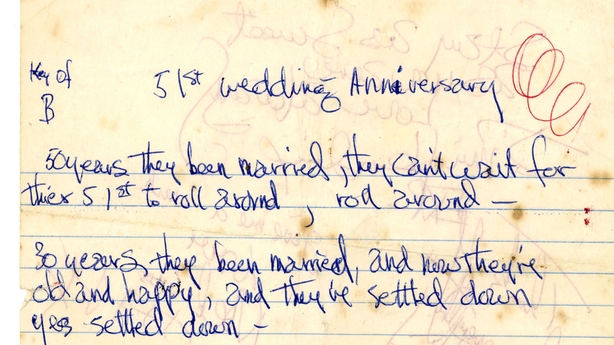 Key of
B
51st wedding Anniversary
50 years they been married, they can't wait for
thier 51st to roll around, roll around —
30 years, they been married, and now they're
old and happy, and they've settled down
yes settled down —